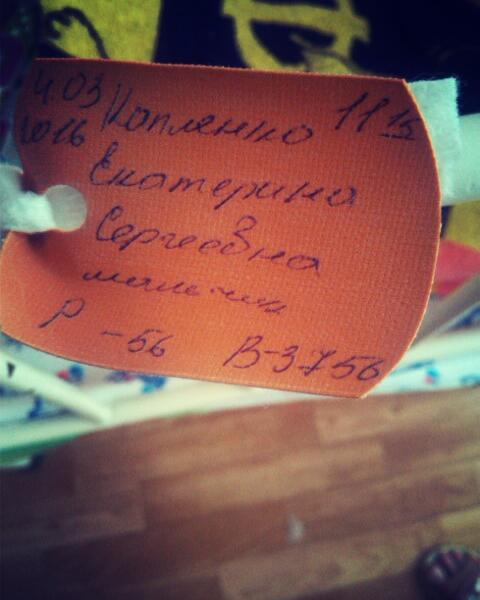 4.03 Копленко 11 15
2016
Екатерина
Сергеевна
мальчик
р -56 В-3756